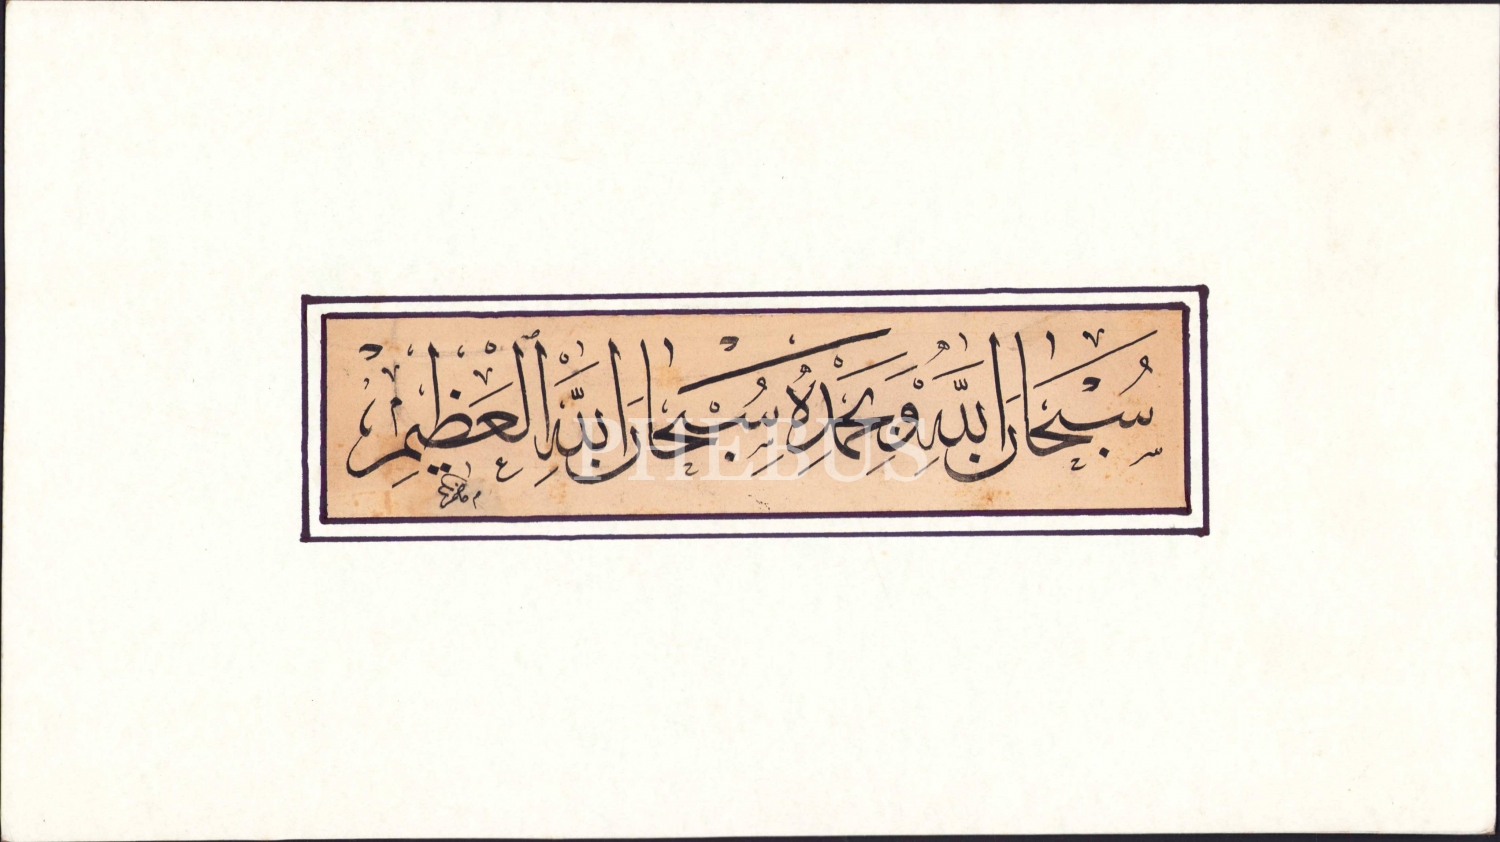 سُبْحَانَ اللهِ وَبِحَمْدِهِ سُبْحَانَ اللهِ الْعَظِيمِ
PHEBUS